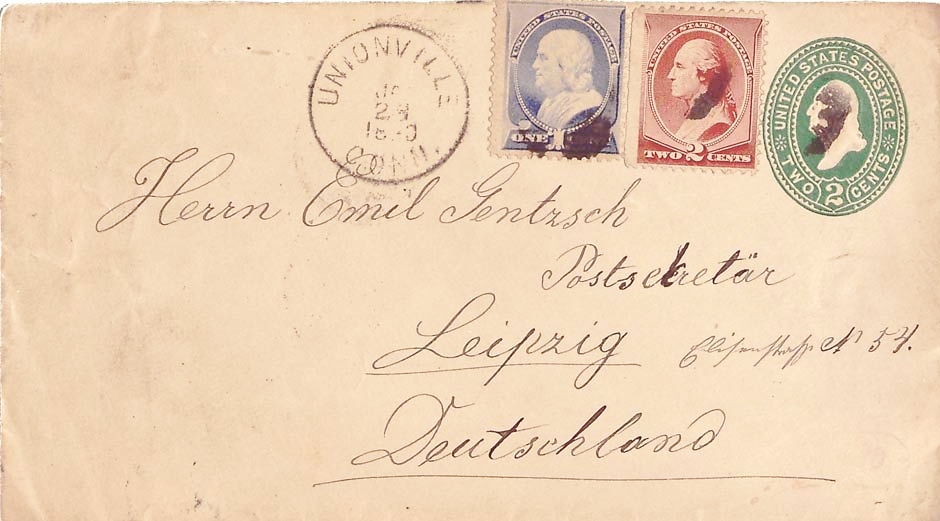 UNIONVILLE
29
CONN.
UNITED STATES POSTAGE
ONE 1
UNITED STATES POSTAGE
TWO 2 CENTS
UNITED STATES POSTAGE
TWO 2 CENTS
Herrn Emil Gentzsch
Postsekretär
Leipzig Elisenstraße No 54.
Deutschland